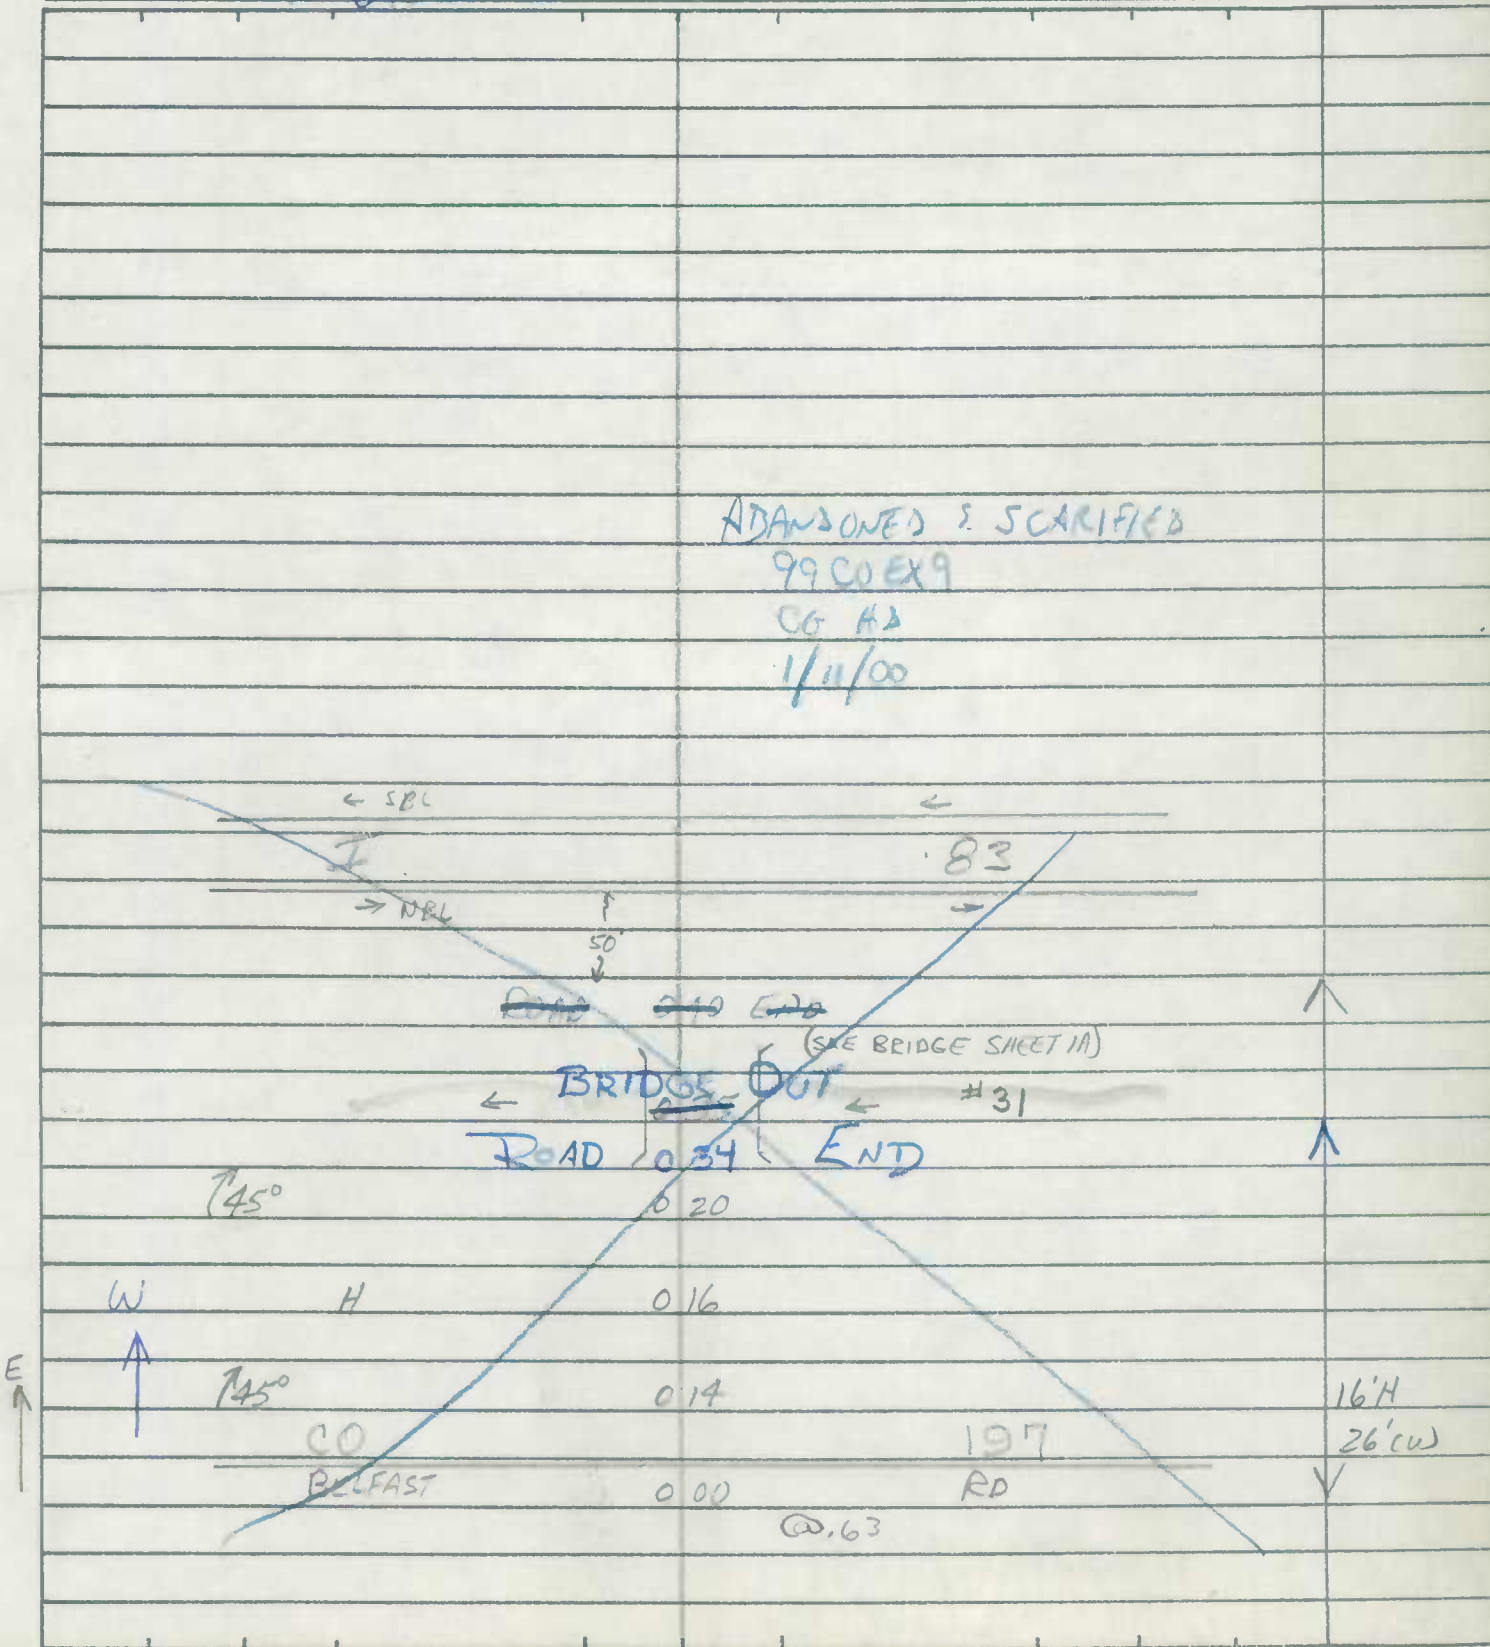 ABANDONED & SCARIFIED
99 CO EX 9
CG HD
1/11/00
← SBL ←
I 83
→ NBL →
50'
ROAD END
(SEE BRIDGE SHEET 1A)
BRIDGE OUT
← ← #31
ROAD 0 34 END
↑45° 0 20
W H 0 16
E ↑45° 0 14 16'H
CO 197 26'(W)
BELFAST 0 00 RD
@.63